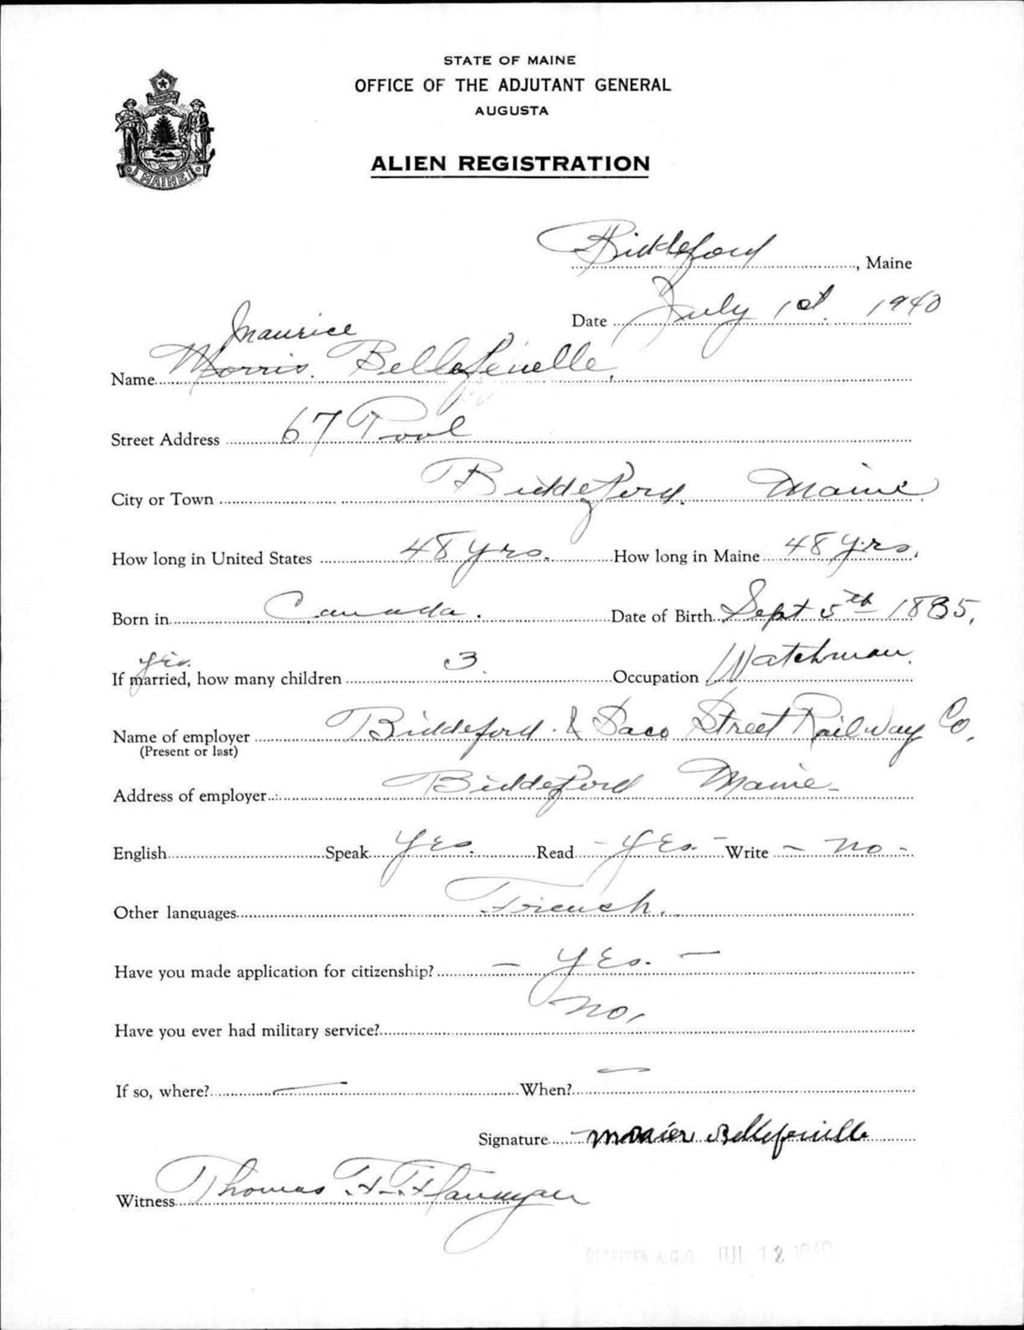 STATE OF MAINE
OFFICE OF THE ADJUTANT GENERAL
AUGUSTA
ALIEN REGISTRATION
MAINE
Biddeford, Maine
Date July 1st. 1940
Maurice
Name Morris. Bellefeuille,
Street Address 67 Pool
City or Town Biddeford. Maine
How long in United States 48 yrs. How long in Maine 48 yrs,
Born in Canada. Date of Birth Sept 5th 1885,
yes.
If married, how many children 3 Occupation Watchman.
Name of employer Biddeford & Saco Street Railway Co,
(Present or last)
Address of employer Biddeford Maine
English Speak Yes. Read - Yes. - Write - No -
Other languages French.
Have you made application for citizenship? - Yes. -
Have you ever had military service? No,
If so, where? — When? —
Signature Bellefeuille
Witness Thomas F. Flannigan
RECEIVED A.G.O. JUL 12 1940